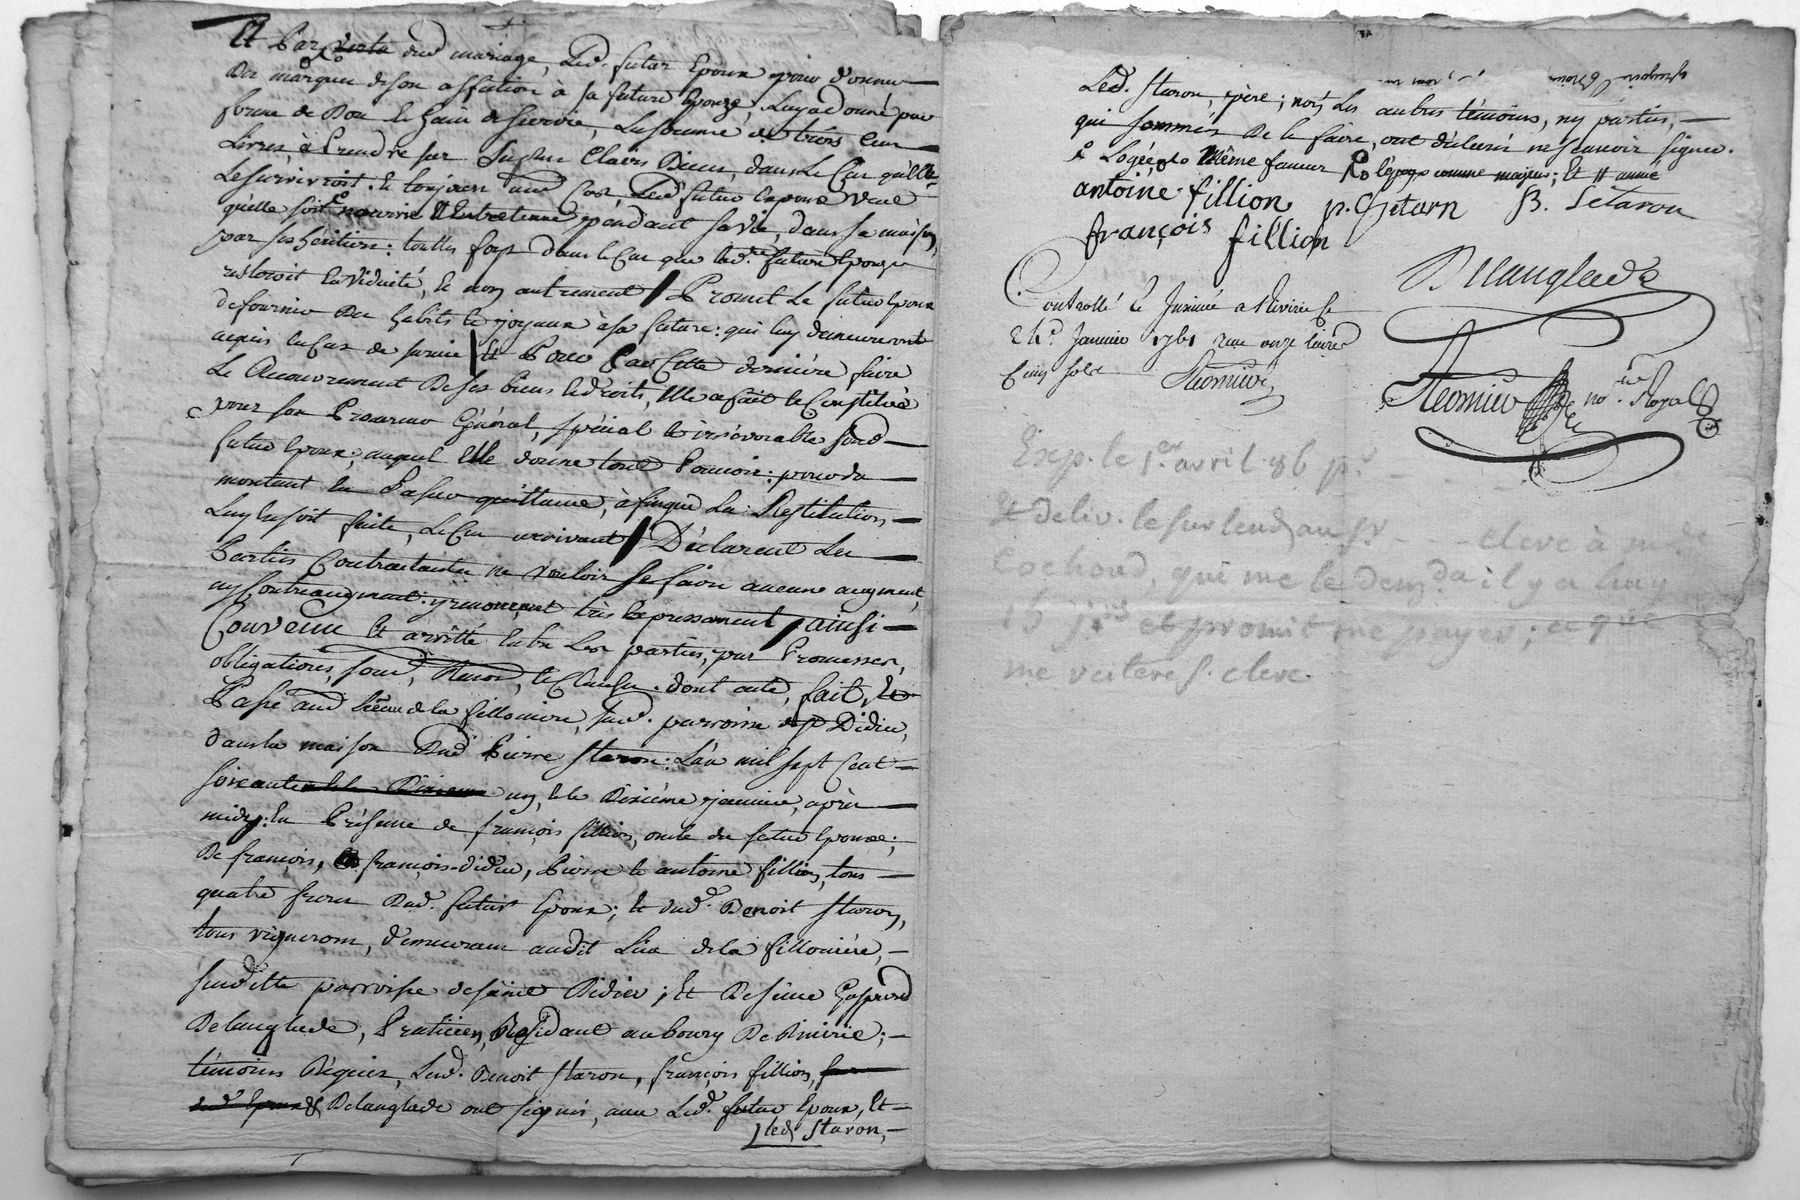 Et Par dud mariage, Led. futur Epoux pour donner
Des marques de son affection à sa future Epouze, Luy a donné par
forme de Don de Gain de Survie, La Somme de trois Cent
Livres, à Prendre sur Ses plus Clairs Biens, dans Le Cas qu'elle
Le survivroit. Et toujours aud Cas, Led futur Epoux veut
qu'elle soit nourrie Et Entretenue, pendant sa vie, dans sa maison,
par ses héritiers: touttes foys dans le Cas que lad. future Epouze
resteroit En Viduité, & non autrement / Promet Le futur Epoux
de fournir Des habits & joyaux à sa future: qui luy demeureront
acquis En Cas de survie / Et Pour Par Cette dernière faire
Le Recouvrement De ses biens & droits, Elle a fait & Constitué
pour son Procureur Général, spécial & irrévocable Sond
futur Epoux; auquel Elle donne tout Pouvoir: pour du
montant En Passer quittance, à fin que La Restitution
Luy En soit faite, Le Cas arrivant / Déclarent Les
Parties Contractantes ne vouloir se faire aucune augment,
ny Contreaugment: y renonçant très Expressement / ainsi
Convenu Et arretté Entre Les parties, par Promesses,
obligations, soum, Renon, & Clauses. dont acte, fait, &
Passé aud Lieu de la fillonière, sud. parroisse St Didier,
dans la maison Dud Pierre Staron: L'an mil sept Cent
soixante un, & le Dixième janvier, après
midy: En Présence de françois fillion, oncle du futur Epoux;
De françois, françois-didier, Pierre & antoine fillion, tous
quatre freres Dud. futur Epoux; & dud. Benoit Staron,
tous vignerons, demeurant audit Lieu de la fillonière,
suditte parroisse de saint Didier; Et De sieur Gaspard
Delanglade, Praticien, Résidant au bourg De Riverie;
témoins Réquis, Lesd. Benoit Staron, françois fillion,
Delanglade ont signés, avec Led. futur Epoux, Et
led Staron,
Led. Staron, père; non Les autres témoins, ny parties,
qui sommés De le faire, ont déclaré ne scavoir signer.
même faveur l'epoux comme majeur; Et
antoine fillion p. Setarn B. Setaron
françois fillion
Delanglade
Controllé & Insinué a Riverie le
24e. Janvier 1761 reçu onze livres
Cinq sols
no.re Royal
Exp. le 1.er avril. 86 pr
& deliv. le surlend au Sr - - cleve à
Cochard, qui me le demda il y a huy
15 jrs et promit me payer; ce que
me reitere S. cleve.